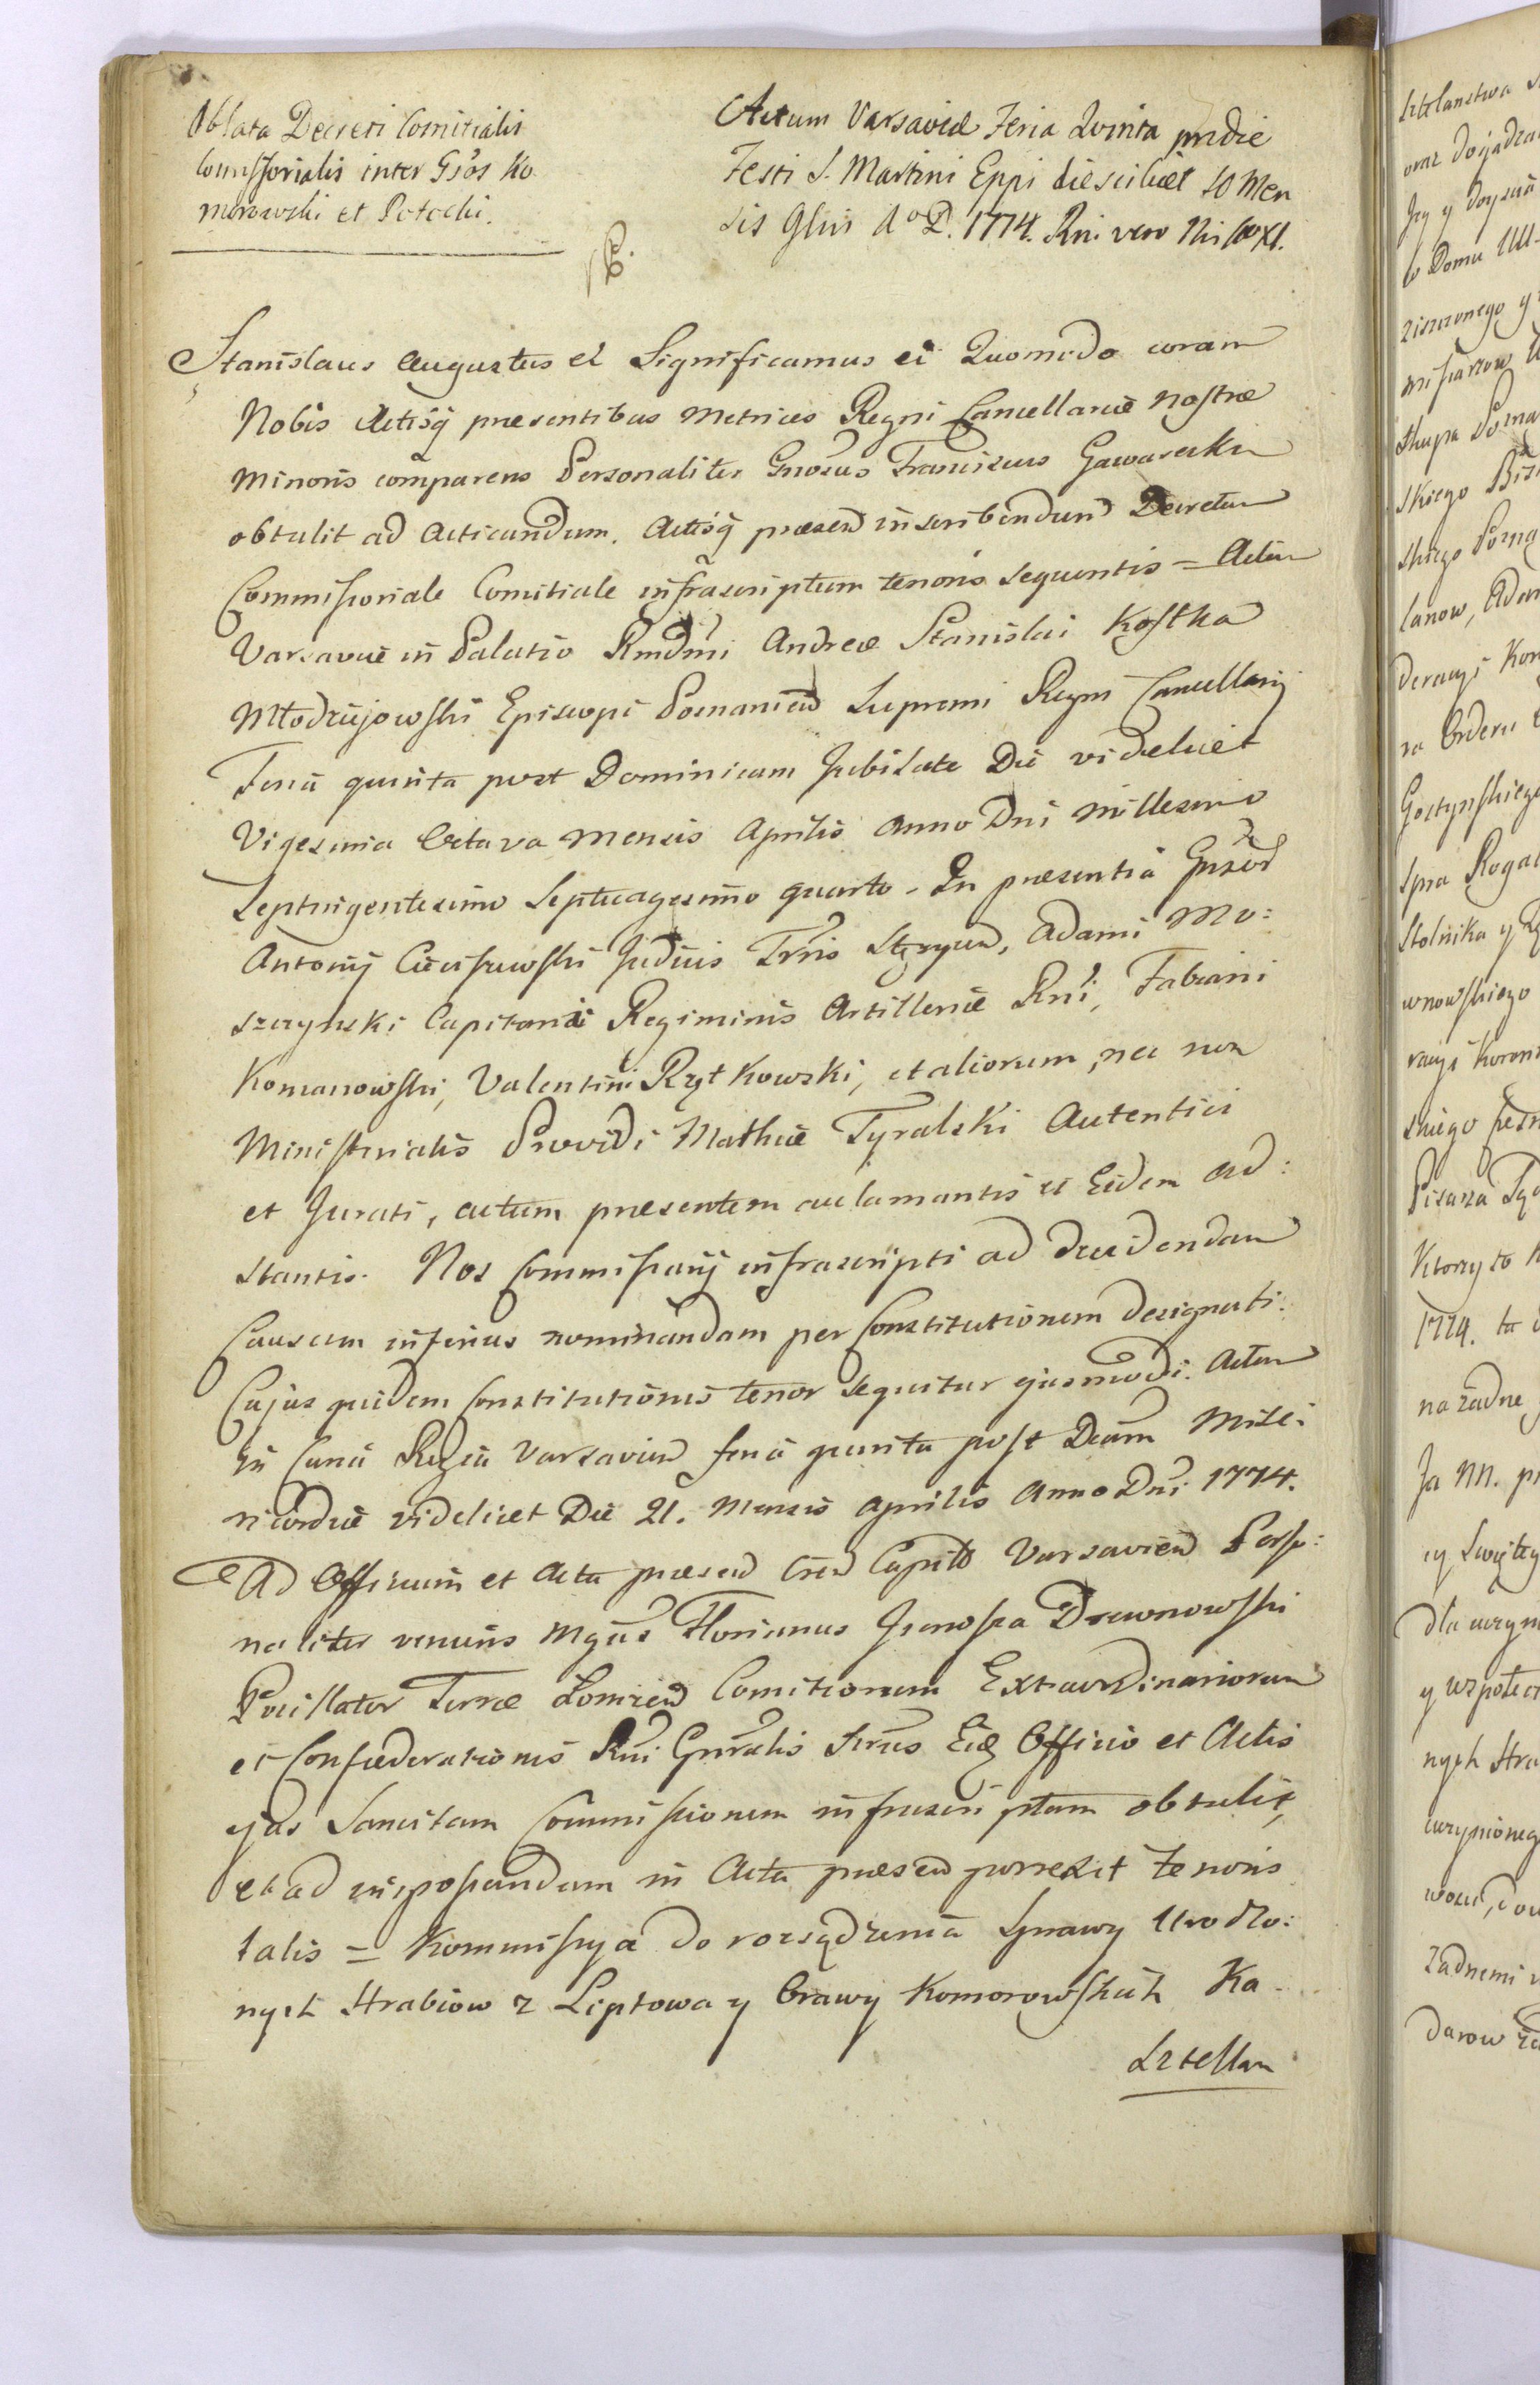 Oblata Decreti Comitialis
Comissorialis inter Gsos Ko
morowski et Potocki.
Actum Varsaviæ Feria Quinta pridie
Festi S. Martini Eppi die scilicet 10 Men
sis 9bris Ao D. 1774. Rni vero Nri Ao XI.
Stanislaus Augustus et Significamus et Quomodo coram
Nobis Actisq præsentibus Metrices Regni Cancellariæ nostræ
Minoris comparens Personaliter Gnosus Franciscus Gawarecki
obtulit ad acticandum, Actisq præsen inscribendum Decretum
Commissoriale Comitiale infrascriptum tenoris sequentis = Actum
Varsaviæ in Palatio Rmdmi Andreæ Stanislai Kostka
Młodziejowski Episcopi Posnanien Supremi Regni Cancellarij
Feria quinta post Dominicam Jubilate Die videlicet
Vigesima Octava Mensis Aprilis Anno Dni Millesimo
Septuigentesimo Septuagesimo quarto. In præsentia Gnsor
Antonij Judicis Trris, Adami Mo:
szczynski Capitanei Regiminis Artilleriæ Rni, Fabiani
Komanowski, Valentini Rzytkowski, et aliorum, nec non
Ministerialis Providi Mathiæ Tyralski Autentici
et Jurati, actum præsentem acclamantis et Eidem ad:
stantis. Nos Commissarij infrascripti ad decidendam
Causam inferius nominandam per Constitutionem designati.
Cujus quidem Constitutionis tenor sequitur ejusmodi. Actum
in Curia Regia Varsavien feria quinta post Dcam Mise:
ricordiæ videlicet Die 21. Mensis Aprilis Anno Dni 1774.
Ad Officium et Acta præsen Cren Capit Varsavien Perso:
naliter veniens Mgcus Florianus Junosza Drewnowski
Pocillator Terræ Łomzen Comitiorum Extraordinariorum
et Confæderationis Rni Gnralis Srius Eid Officio et Actis
ejus Sancitam Commissionem infrascriptam obtulit,
et ad ingrossandum in Acta præsen porrexit tenoris
talis = Kommissya do rozsądzenia Sprawy Urodzo:
nych Hrabiow z Liptowa y Orawy Komorowskich Ka-
sztellan
sztelanstwa
oraz dojadza
w Domu UU
ziszczonego y
skiego
skiego Pozna
lanow, Adam
deracyi Kor
na Orderu
Gostynskiego
Stolnika y
wnowskiego
racyi Koron
skiego
Pisarza
Ktorzy to
1774. ta
na żadne
Ja NN. pr
ey Swiętey
dla
y wspolec
nych Hra
żadnemi
darow